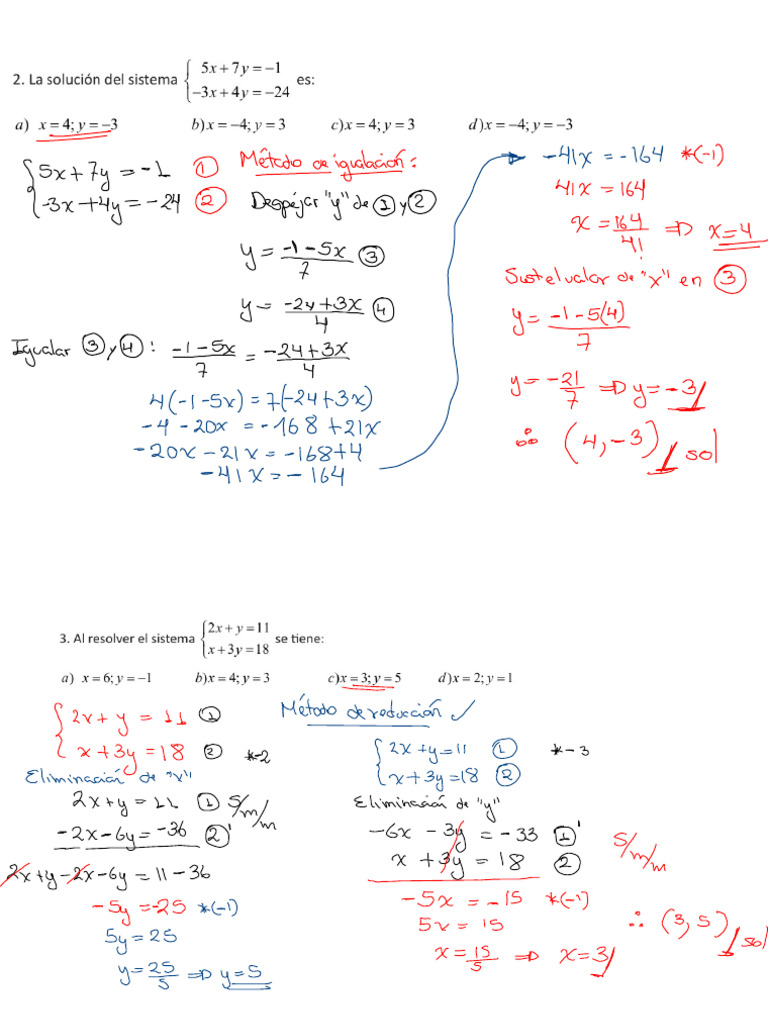 2. La solución del sistema { 5x + 7y = −1
−3x + 4y = −24 es:
a) x = 4; y = −3 b)x = −4; y = 3 c)x = 4; y = 3 d)x = −4; y = −3
{ 5x + 7y = -1 ①
-3x + 4y = -24 ②
Método de igualación:
Despejar "y" de ① y ②
y = (-1 - 5x)/7 ③
y = (-24 + 3x)/4 ④
Igualar ③ y ④ : (-1 - 5x)/7 = (-24 + 3x)/4
4(-1 - 5x) = 7(-24 + 3x)
-4 - 20x = -168 + 21x
-20x - 21x = -168 + 4
-41x = -164
-41x = -164 *(-1)
41x = 164
x = 164/41 ⇒ x = 4
Sust el valor de "x" en ③
y = (-1 - 5(4))/7
y = -21/7 ⇒ y = -3
∴ (4, -3) sol
3. Al resolver el sistema { 2x + y = 11
x + 3y = 18 se tiene:
a) x = 6; y = −1 b)x = 4; y = 3 c)x = 3; y = 5 d)x = 2; y = 1
Método de reducción ✓
{ 2x + y = 11 ①
x + 3y = 18 ② *-2
Eliminación de "x"
2x + y = 11 ① S/m/m
-2x - 6y = -36 ②'
2x + y - 2x - 6y = 11 - 36
-5y = -25 *(-1)
5y = 25
y = 25/5 ⇒ y = 5
{ 2x + y = 11 ① *-3
x + 3y = 18 ②
Eliminación de "y"
-6x - 3y = -33 ①' S/m/m
x + 3y = 18 ②
-5x = -15 *(-1)
5x = 15
x = 15/5 ⇒ x = 3
∴ (3, 5) sol